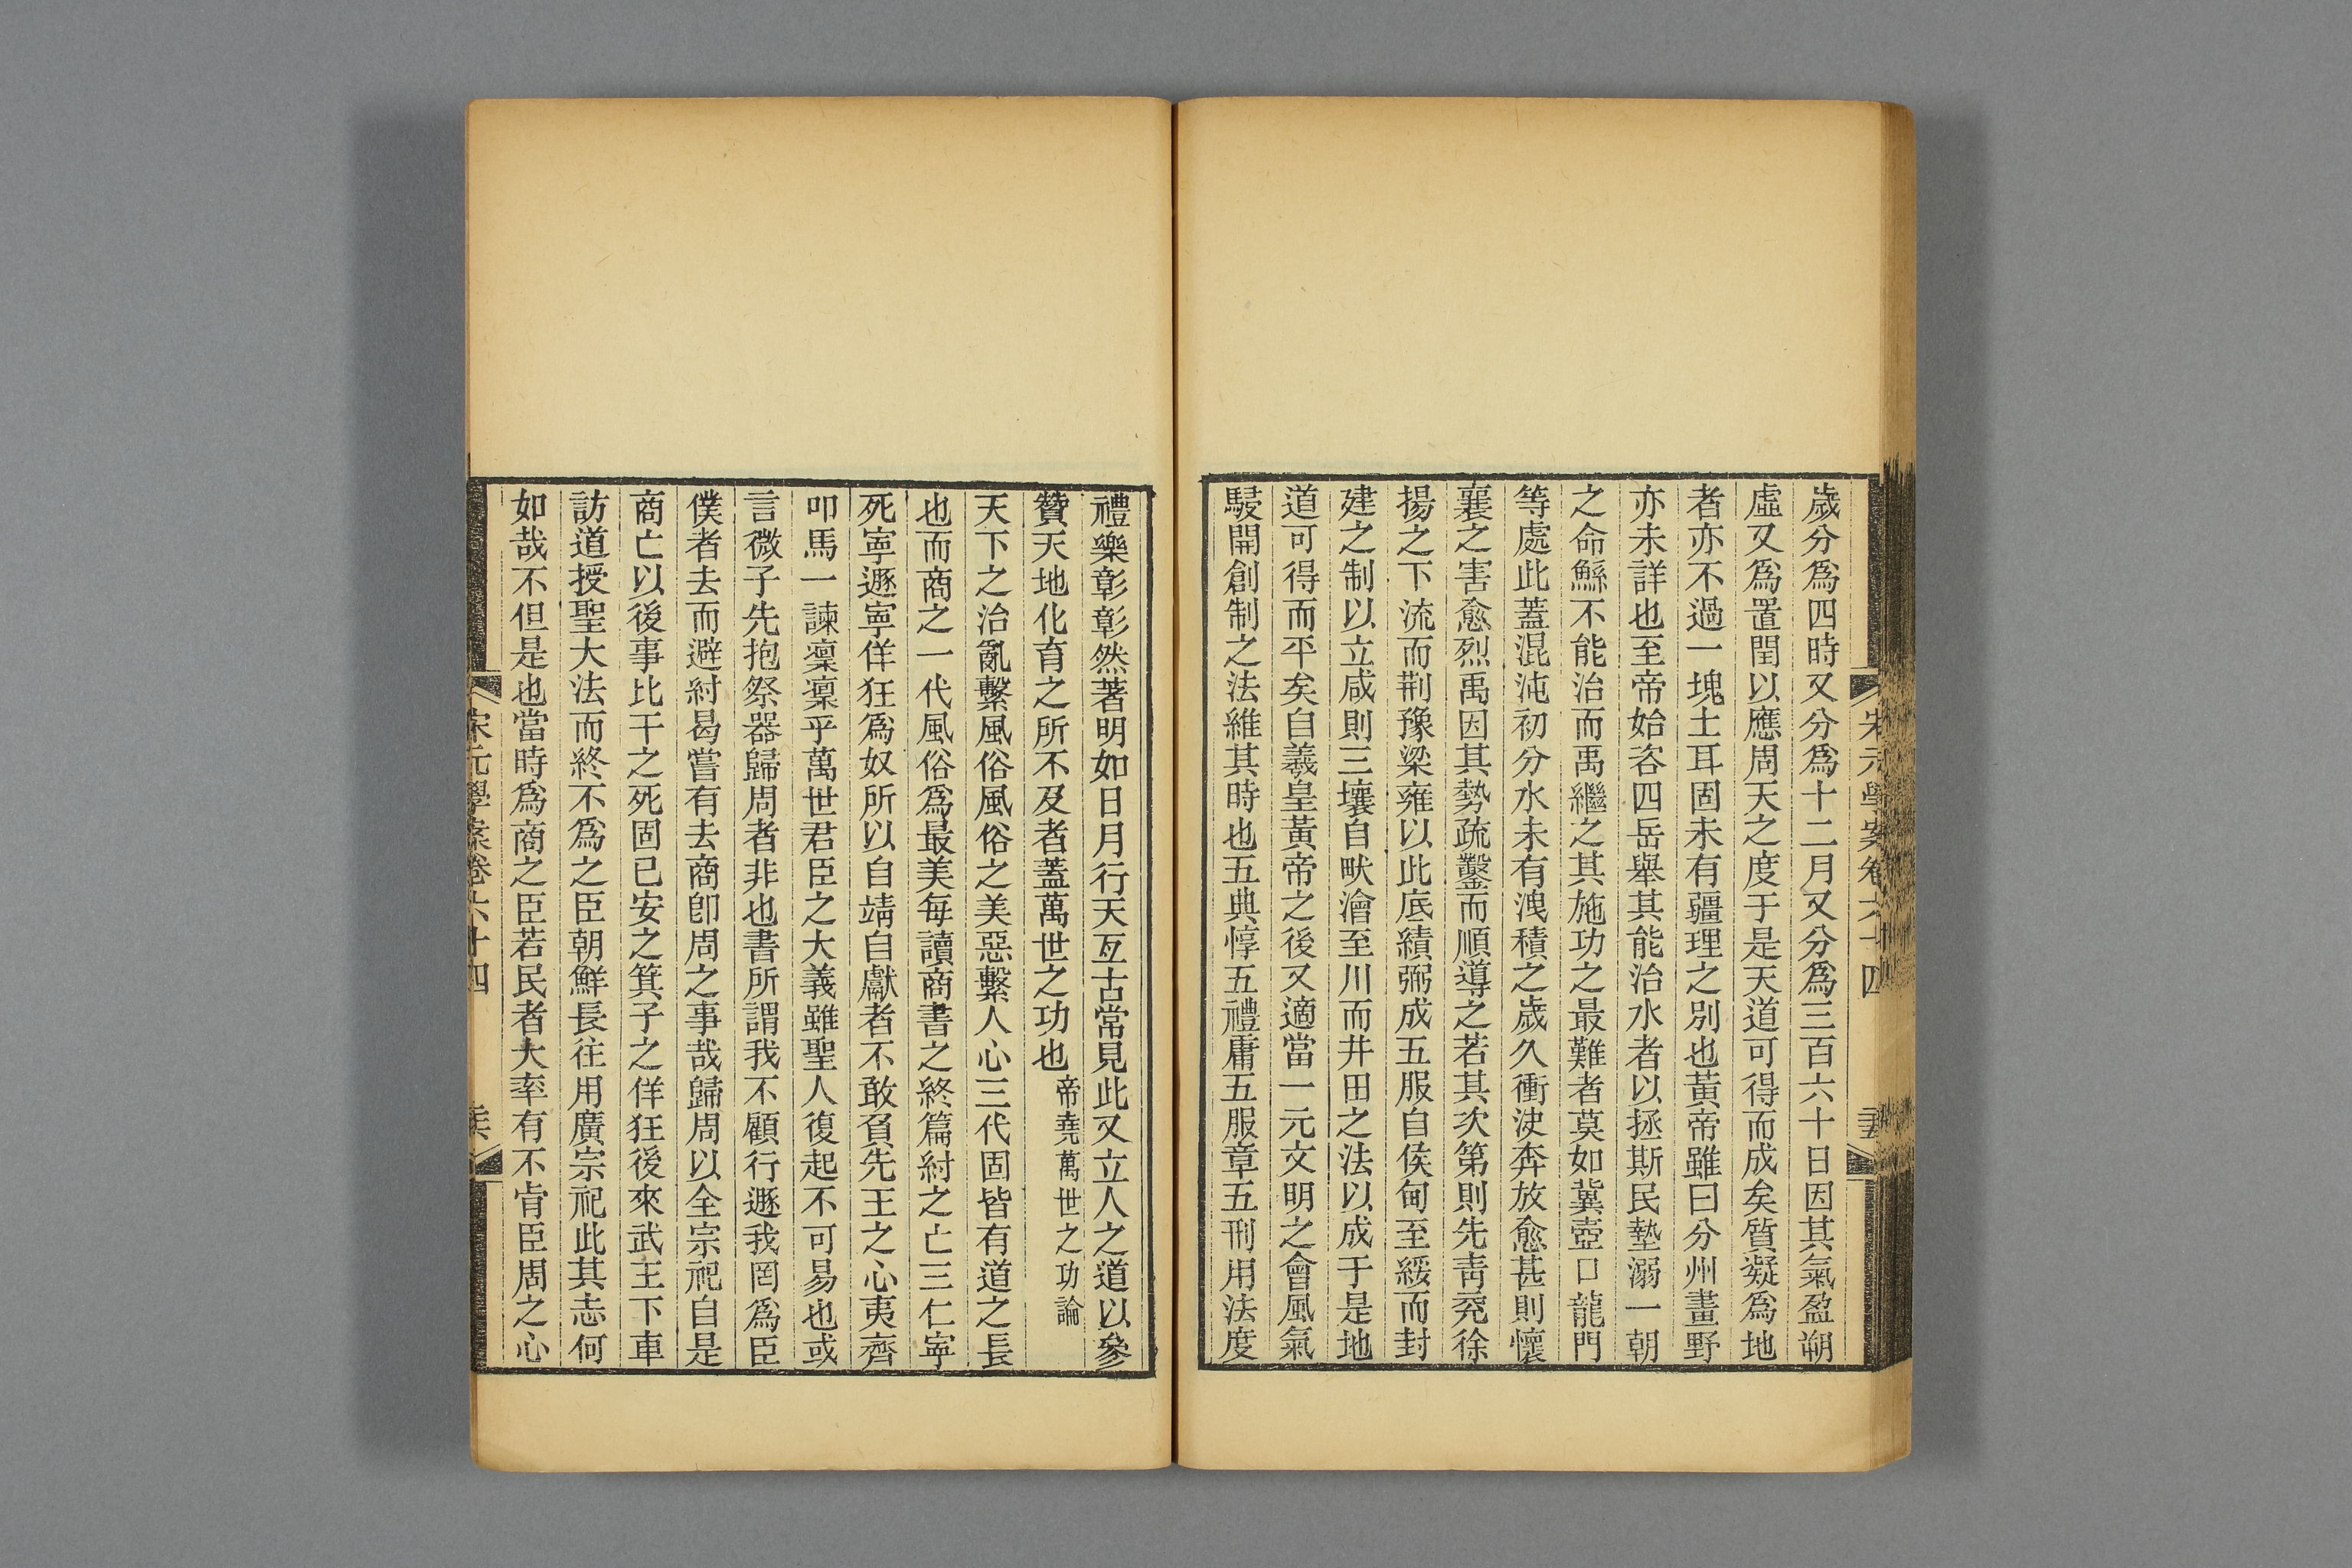 宋元學案卷六十四
歲分爲四時又分爲十二月又分爲三百六十日因其氣盈朔
虛又爲置閏以應周天之度于是天道可得而成矣質凝爲地
者亦不過一塊土耳固未有疆理之別也黃帝雖曰分州畫野
亦未詳也至帝始咨四岳舉其能治水者以拯斯民墊溺一朝
之命鯀不能治而禹繼之其施功之最難者莫如冀壺口龍門
等處此蓋混沌初分水未有洩積之歲久衝決奔放愈甚則懷
襄之害愈烈禹因其勢疏鑿而順導之若其次第則先靑兗徐
揚之下流而荆豫梁雍以此底績弼成五服自侯甸至綏而封
建之制以立咸則三壤自畎澮至川而井田之法以成于是地
道可得而平矣自羲皇黃帝之後又適當一元文明之會風氣
駸開創制之法維其時也五典惇五禮庸五服章五刑用法度
禮樂彰彰然著明如日月行天亙古常見此又立人之道以參
贊天地化育之所不及者蓋萬世之功也帝堯萬世之功論
天下之治亂繫風俗風俗之美惡繫人心三代固皆有道之長
也而商之一代風俗爲最美每讀商書之終篇紂之亡三仁寧
死寧遯寧佯狂爲奴所以自靖自獻者不敢負先王之心夷齊
叩馬一諫凜凜乎萬世君臣之大義雖聖人復起不可易也或
言微子先抱祭器歸周者非也書所謂我不顧行遯我罔爲臣
僕者去而避紂曷嘗有去商卽周之事哉歸周以全宗祀自是
商亡以後事比干之死固已安之箕子之佯狂後來武王下車
訪道授聖大法而終不爲之臣朝鮮長往用廣宗祀此其志何
如哉不但是也當時爲商之臣若民者大率有不肯臣周之心
宋元學案卷六十四